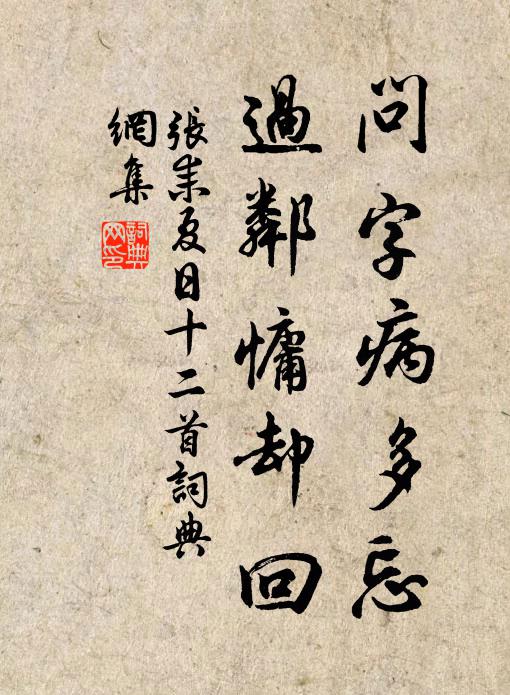 問字病多忘
過鄰慵却回
張耒夏日十二首詞典
網集
詞典
网印